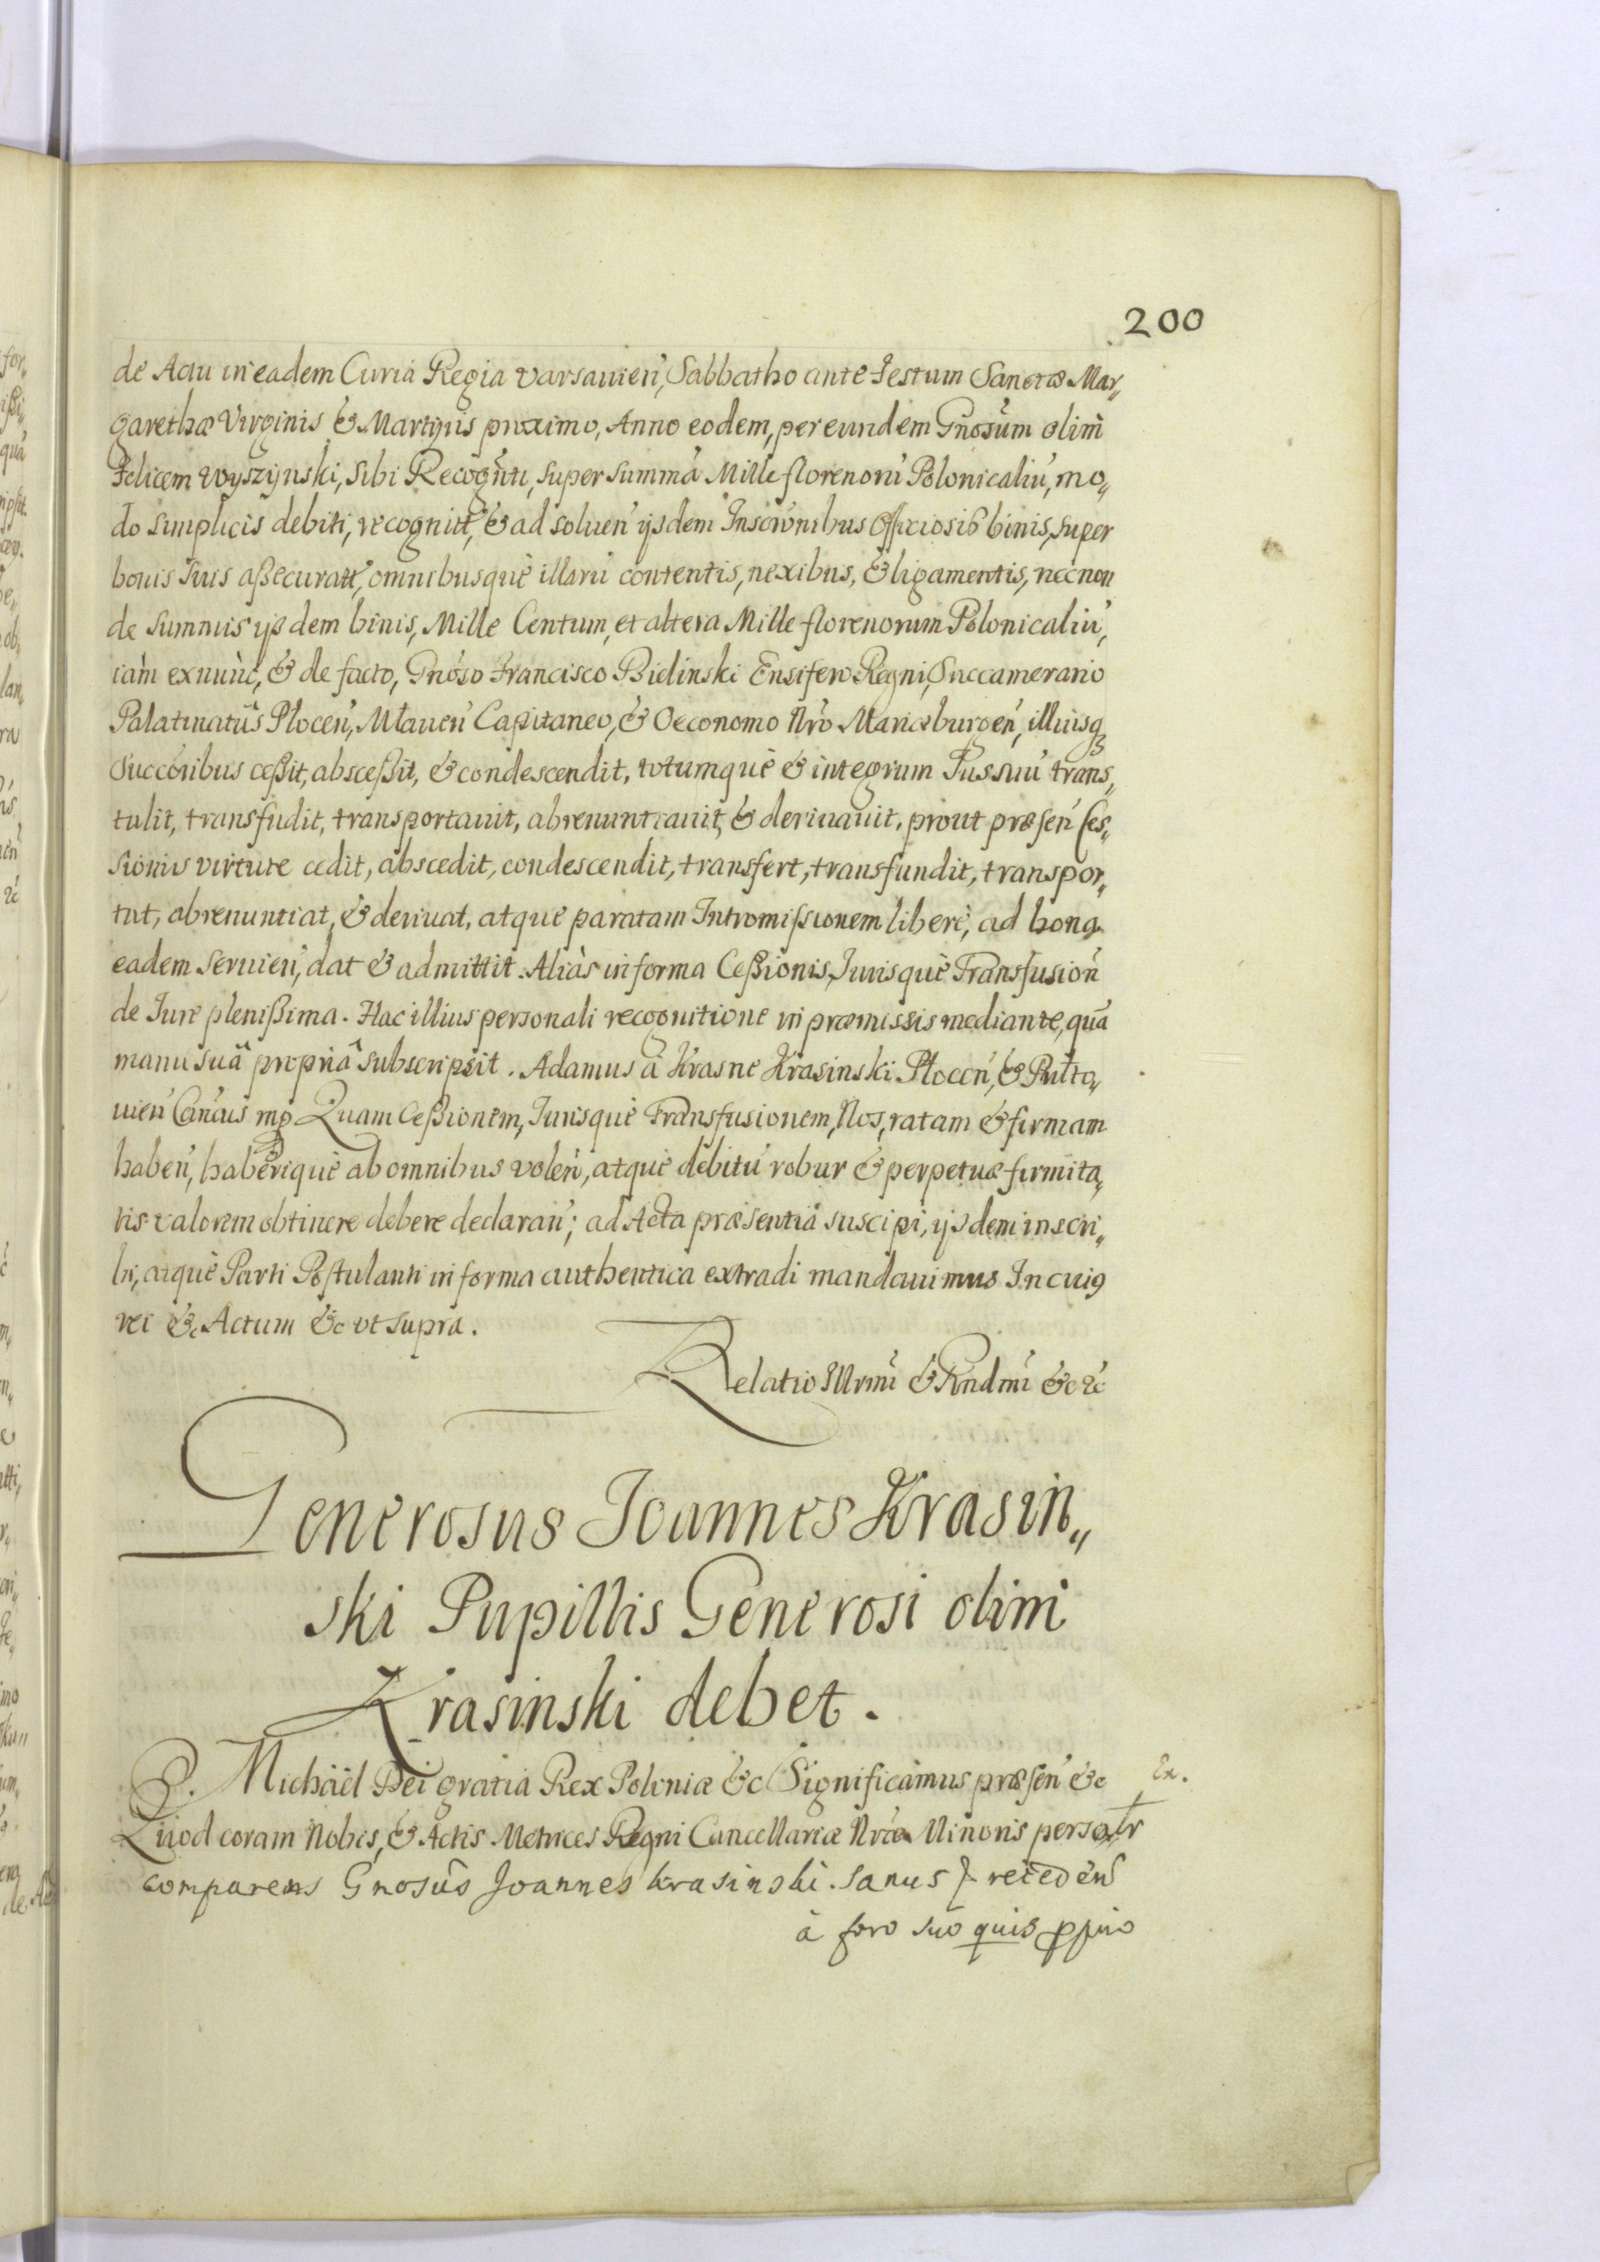 200
de Actu in eadem Curia Regia Varsauien̄, Sabbatho ante Festum Sanctæ Mar„
garethæ Virginis & Martyris proximo, Anno eodem, per eundem Gnosum olim
Felicem Wyszynski, sibi Recogn̄ti, super summa Mille florenorū Polonicaliū, mo„
do simplicis debiti, recognitt, & ad soluen̄ ijsdem Inscrōnibus Officiosis binis, super
bonis suis aßecuratt, omnibusquè illarū contentis, nexibus, & ligamentis, necnon
de summis ijsdem binis, Mille Centum, et altera Mille florenorum Polonicaliū,
iam exnunc, & de facto, Gnoso Francisco Bielinski Ensifero Regni, Succamerario
Palatinatûs Plocen̄, Mlauen̄ Capitaneo, & Oeconomo Nr̄o Mariæburgen̄, illiusq3
Succōribus ceßit, absceßit, & condescendit, totumquè & integrum Jus suū trans„
tulit, transfudit, transportauit, abrenuntiauit, & deriuauit, prout præsen̄ Ces„
sionis virtute cedit, abscedit, condescendit, transfert, transfundit, transpor„
tat, abrenuntiat, & deriuat, atquè paratam Intromissionem liberè, ad bona
eadem seruien̄, dat & admittit. Aliàs in forma Ceßionis, Jurisquè Transfusion̄
de Jure plenißima. Hac illius personali recognitione in præmissis mediante, quā
manu suâ propriâ subscripsit. Adamus à Krasne Krasinski Plocen̄, & Pulto„
uien̄ Can̄cus mp Quam Ceßionem, Jurisquè Transfusionem, Nos, ratam & firmam
haben̄, haberiquè ab omnibus volen̄, atquè debitū robur & perpetuæ firmita„
tis valorem obtinere debere declaran̄; ad Acta præsentiâ suscipi, ijsdem inscri„
bi, atquè Parti Postulanti in forma authentica extradi mandauimus In cui9
rei &c Actum &c ut supra.
Relatio Illrmi & Rndmi &c &c
Generosus Joannes Krasin„
ski Pupillis Generosi olim
Krasinski debet.
Michaël Dei gratia Rex Poloniæ &c Significamus præsen̄ &c Ex.
Quod coram Nobis, & Actis Metrices Regni Cancellariæ Nr̄æ Minoris personlr
comparens Gnosus Joannes Krasinski. sanus & recedens
à foro suo quis ppio